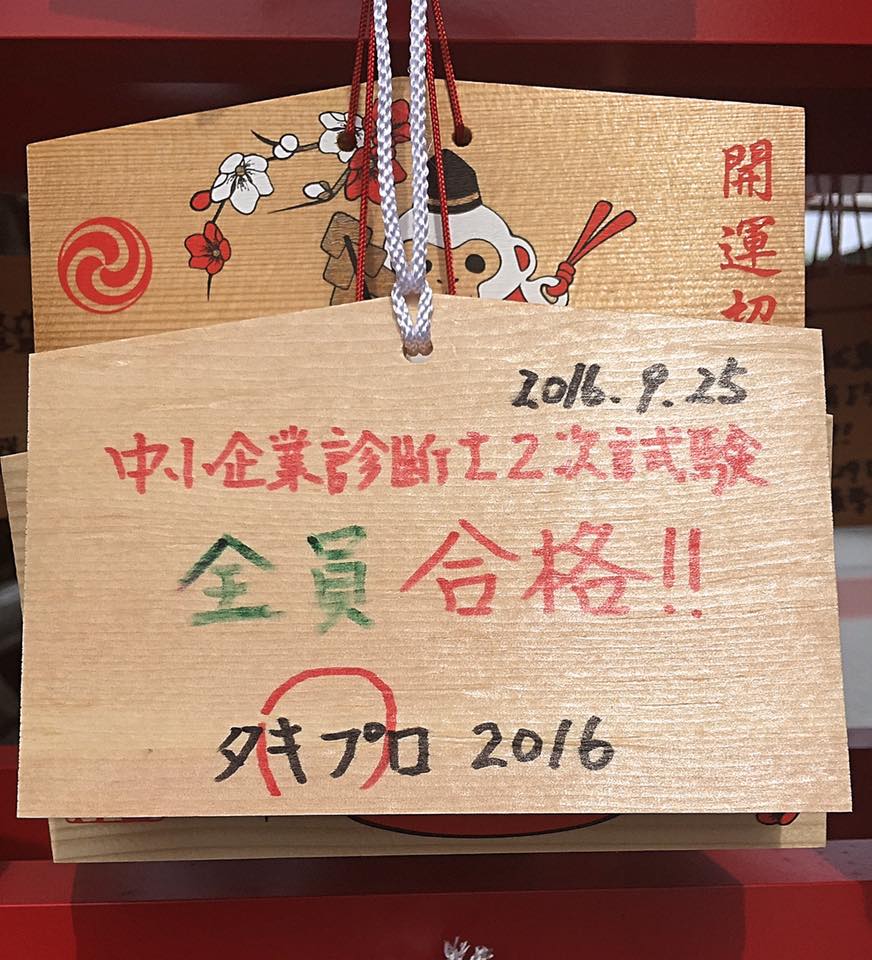 開運招
2016.9.25
中小企業診断士2次試験
全員合格!!
タキプロ 2016